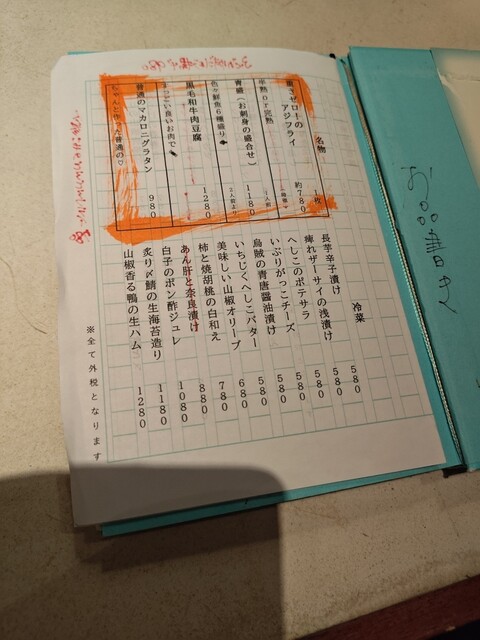 お品書き
名物
臭さゼロ！の
アジフライ
1枚
約780
半熟or完熟
1人前
青盛（お刺身の盛合せ）
1180
色々鮮魚6種盛り
2人前より
黒毛和牛肉豆腐
1280
すっごい良いお肉で
普通のマカロニグラタン
980
ちゃんと作った普通の♡
冷菜
長芋辛子漬け 580
痺れザーサイの浅漬け 580
へしこのポテサラ 580
いぶりがっこチーズ 580
烏賊の青唐醤油漬け 580
いちじくへしこバター 680
美味しい山椒オリーブ 780
柿と焼胡桃の白和え 880
あん肝と奈良漬け 1080
白子のポン酢ジュレ 1180
炙り〆鯖の生海苔造り 1180
山椒香る鴨の生ハム 1280
※全て外税となります